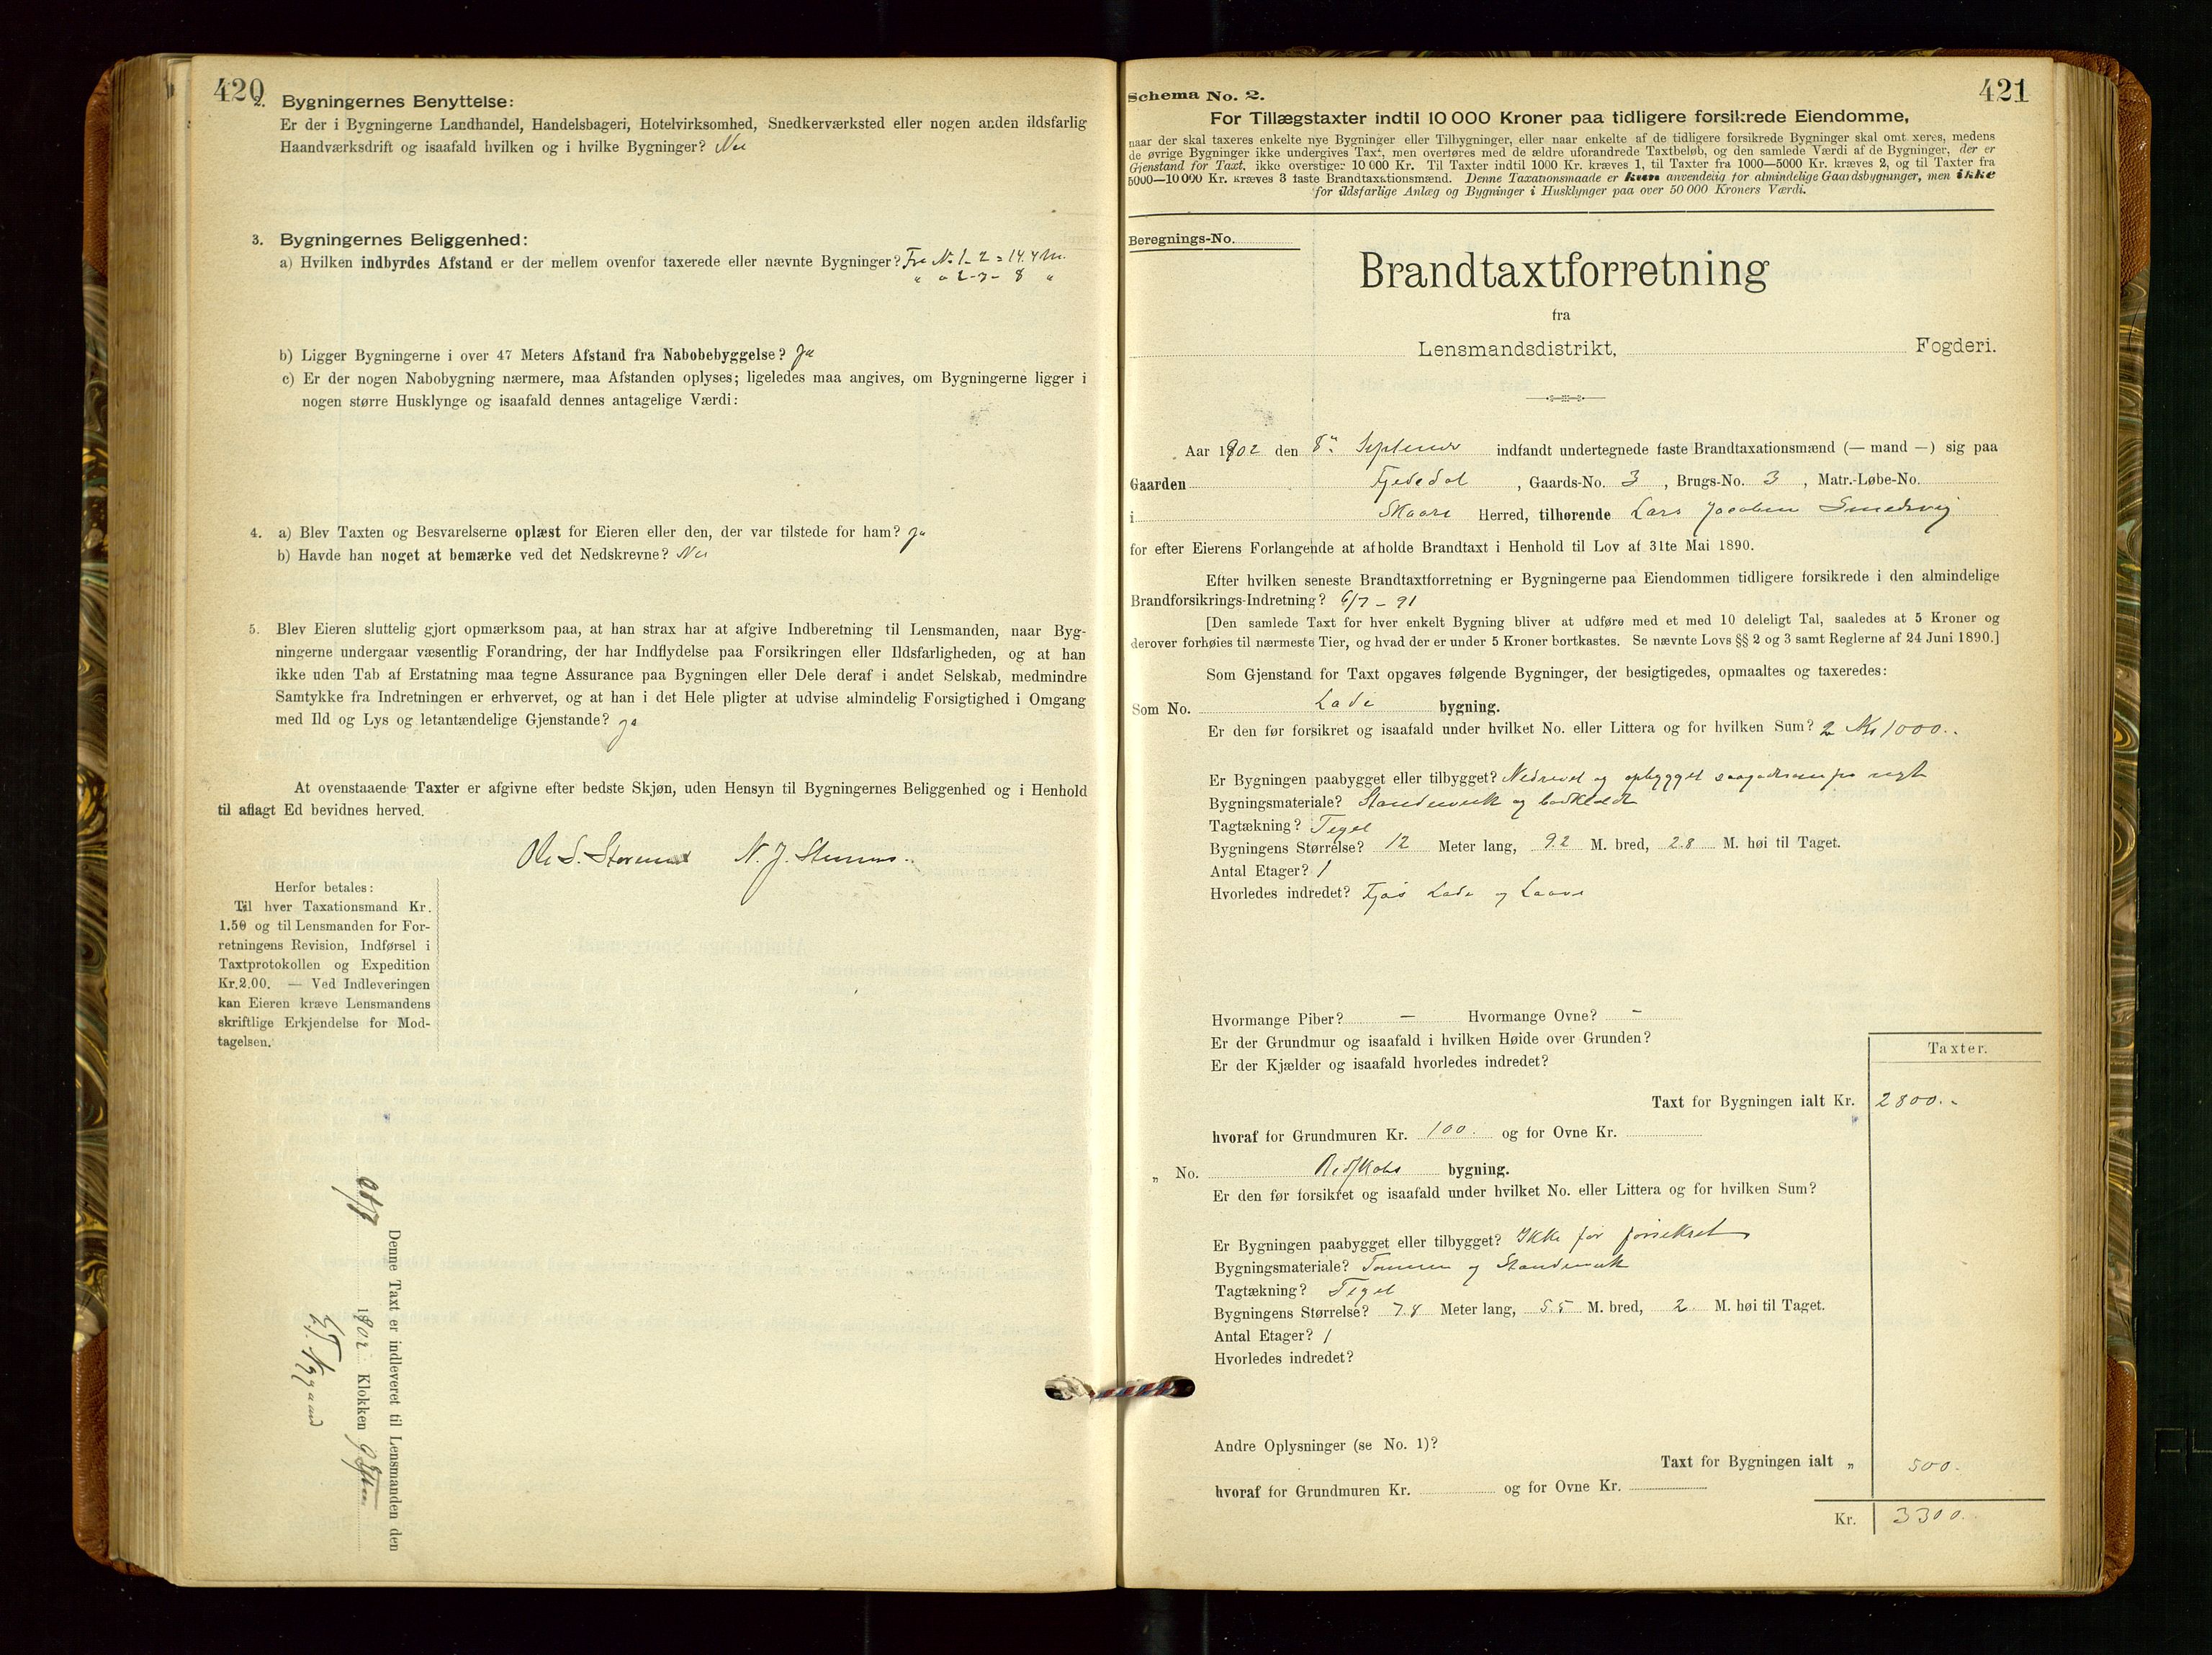 420
2. Bygningernes Benyttelse:
Er der i Bygningerne Landhandel, Handelsbageri, Hotelvirksomhed, Snedkerværksted eller nogen anden ildsfarlig
Haandværksdrift og isaafald hvilken og i hvilke Bygninger? Nei
3. Bygningernes Beliggenhed:
a) Hvilken indbyrdes Afstand er der mellem ovenfor taxerede eller nævnte Bygninger? Fra No 1 - 2 = 14.4 M.
" " 2-3 - 8 "
b) Ligger Bygningerne i over 47 Meters Afstand fra Nabobebyggelse? Ja
c) Er der nogen Nabobygning nærmere, maa Afstanden oplyses; ligeledes maa angives, om Bygningerne ligger i
nogen større Husklynge og isaafald dennes antagelige Værdi:
4. a) Blev Taxten og Besvarelserne oplæst for Eieren eller den, der var tilstede for ham? Ja
b) Havde han noget at bemærke ved det Nedskrevne? Nei
5. Blev Eieren sluttelig gjort opmærksom paa, at han strax har at afgive Indberetning til Lensmanden, naar Byg-
ningerne undergaar væsentlig Forandring, der har Indflydelse paa Forsikringen eller Ildsfarligheden, og at han
ikke uden Tab af Erstatning maa tegne Assurance paa Bygningen eller Dele deraf i andet Selskab, medmindre
Samtykke fra Indretningen er erhvervet, og at han i det Hele pligter at udvise almindelig Forsigtighed i Omgang
med Ild og Lys og letantændelige Gjenstande? ja
At ovenstaaende Taxter er afgivne efter bedste Skjøn, uden Hensyn til Bygningernes Beliggenhed og i Henhold
til aflagt Ed bevidnes herved.
Ole S. N. J.
Herfor betales:
Til hver Taxationsmand Kr.
1.50 og til Lensmanden for For-
retningens Revision, Indførsel i
Taxtprotokollen og Expedition
Kr. 2.00. — Ved Indleveringen
kan Eieren kræve Lensmandens
skriftlige Erkjendelse for Mod-
tagelsen.
Denne Taxt er indleveret til Lensmanden den
1902 Klokken 9 Eftm
Nygaard
421
Schema No. 2.
For Tillægstaxter indtil 10 000 Kroner paa tidligere forsikrede Eiendomme,
naar der skal taxeres enkelte nye Bygninger eller Tilbygninger, eller naar enkelte af de tidligere forsikrede Bygninger skal omt xeres, medens
de øvrige Bygninger ikke undergives Taxt, men overføres med de ældre uforandrede Taxtbeløb, og den samlede Værdi af de Bygninger, der er
Gjenstand for Taxt, ikke overstiger 10 000 Kr. Til Taxter indtil 1000 Kr. kræves 1, til Taxter fra 1000—5000 Kr. kræves 2, og til Taxter fra
5000—10 000 Kr. kræves 3 faste Brandtaxationsmænd. Denne Taxationsmaade er kun anvendelig for almindelige Gaardsbygninger, men ikke
for ildsfarlige Anlæg og Bygninger i Husklynger paa over 50 000 Kroners Værdi.
Beregnings-No.
Brandtaxtforretning
fra
Lensmandsdistrikt, Fogderi.
Aar 1902 den 8de September indfandt undertegnede faste Brandtaxationsmænd (— mand —) sig paa
Gaarden , Gaards-No. 3 , Brugs-No. 3 , Matr.-Løbe-No.
i Skaare Herred, tilhørende Lars Jacobsen Smedsvig
for efter Eierens Forlangende at afholde Brandtaxt i Henhold til Lov af 31te Mai 1890.
Efter hvilken seneste Brandtaxtforretning er Bygningerne paa Eiendommen tidligere forsikrede i den almindelige
Brandforsikrings-Indretning? 6/7 - 91
[Den samlede Taxt for hver enkelt Bygning bliver at udføre med et med 10 deleligt Tal, saaledes at 5 Kroner og
derover forhøies til nærmeste Tier, og hvad der er under 5 Kroner bortkastes. Se nævnte Lovs §§ 2 og 3 samt Reglerne af 24 Juni 1890.]
Som Gjenstand for Taxt opgaves følgende Bygninger, der besigtigedes, opmaaltes og taxeredes:
Som No. Lade bygning.
Er den før forsikret og isaafald under hvilket No. eller Littera og for hvilken Sum? 2 Kr 1000..
Er Bygningen paabygget eller tilbygget? Nedrevet og opbygget
Bygningsmateriale? Standerverk og bordklædt
Tagtækning? Tegel
Bygningens Størrelse? 12 Meter lang, 9.2 M. bred, 2.8 M. høi til Taget.
Antal Etager? 1
Hvorledes indredet? Fjøs Lade og Laave
Hvormange Piber? — Hvormange Ovne? -
Er der Grundmur og isaafald i hvilken Høide over Grunden?
Er der Kjælder og isaafald hvorledes indredet?
Taxter.
Taxt for Bygningen ialt Kr. 2800.-
hvoraf for Grundmuren Kr. 100. og for Ovne Kr.
„ No. Redskabs bygning.
Er den før forsikret og isaafald under hvilket No. eller Littera og for hvilken Sum?
Er Bygningen paabygget eller tilbygget? Ikke før forsikret
Bygningsmateriale? Tømmer og Standerverk
Tagtækning? Tegel
Bygningens Størrelse? 7.8 Meter lang, 5.5 M. bred, 2 M. høi til Taget.
Antal Etager? 1
Hvorledes indredet?
Andre Oplysninger (se No. 1)?
Taxt for Bygningen ialt „ 500.
hvoraf for Grundmuren Kr. og for Ovne Kr.
Kr. 3300.